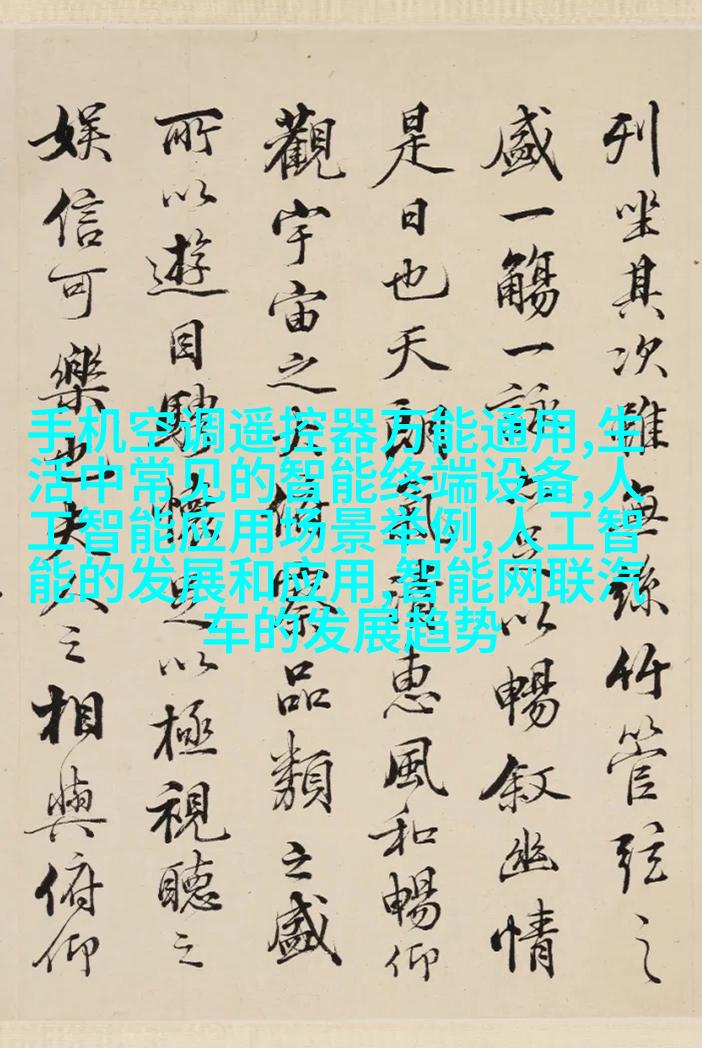 列坐其次雖無絲竹管弦之
盛一觴一詠亦足以暢敘幽情
是日也天朗氣清惠風和暢仰
觀宇宙之大俯察品類之盛
所以遊目騁懷足以極視聽之
娛信可樂也夫人之相與俯仰
手机空调遥控器万能通用,生
活中常见的智能终端设备,人
工智能应用场景举例,人工智
能的发展和应用,智能网联汽
车的发展趋势